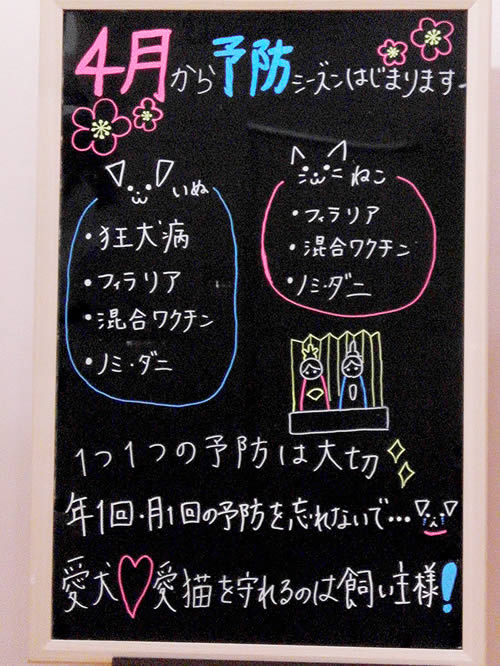 4月から予防シーズンはじまります
いぬ
・狂犬病
・フィラリア
・混合ワクチン
・ノミ・ダニ
ねこ
・フィラリア
・混合ワクチン
・ノミ・ダニ
1つ1つの予防は大切
年1回・月1回の予防を忘れないで…
愛犬♡愛猫を守れるのは飼い主様!